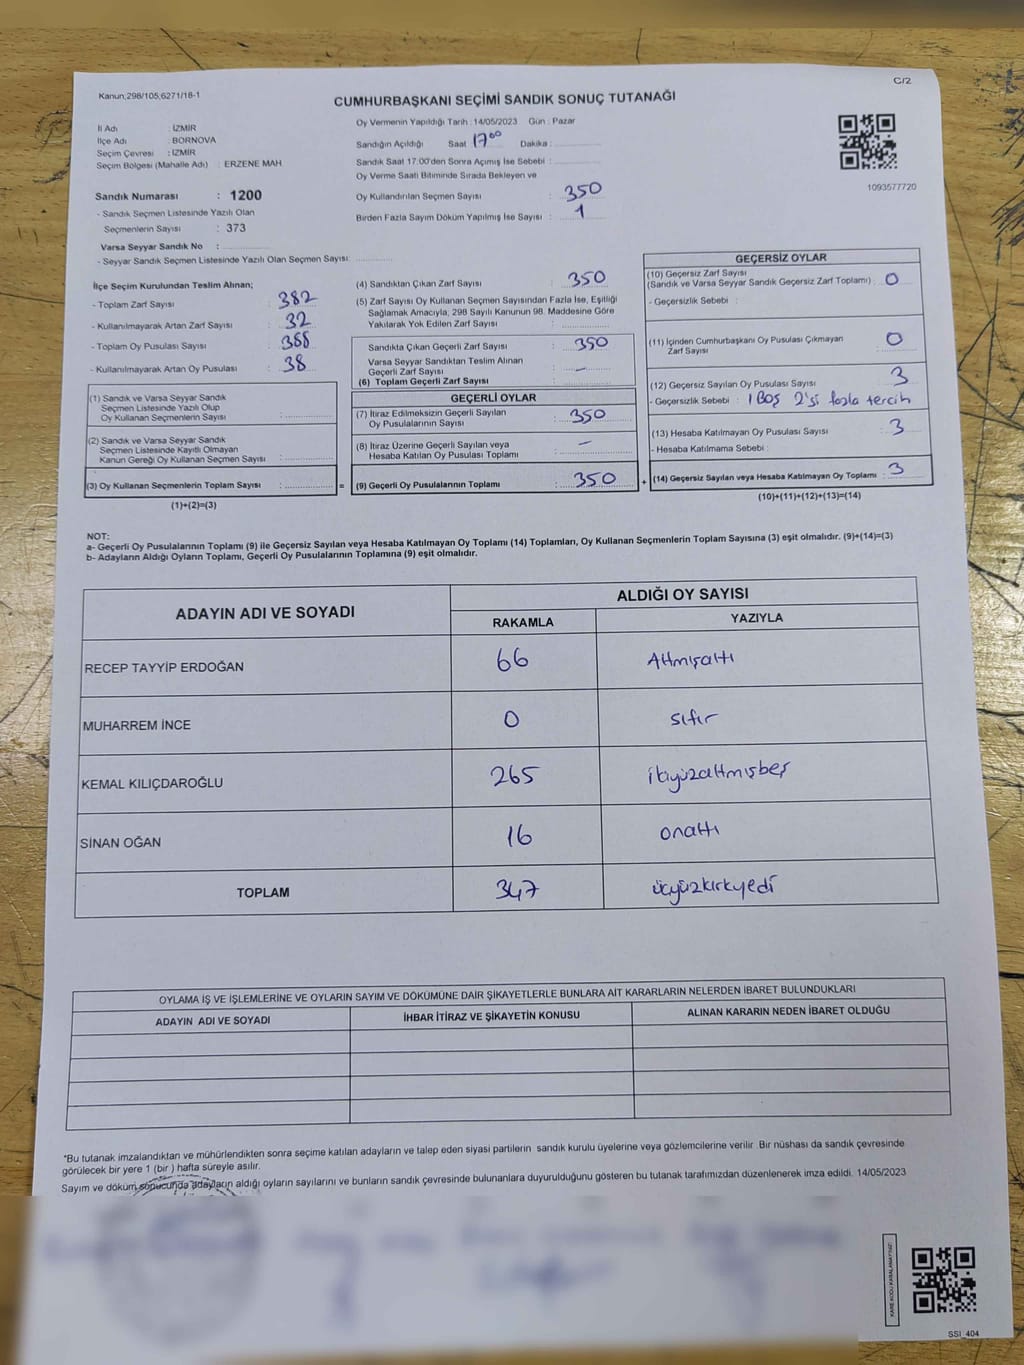 Kanun;298/105;6271/18-1
C/2
CUMHURBAŞKANI SEÇİMİ SANDIK SONUÇ TUTANAĞI
İl Adı : İZMİR
İlçe Adı : BORNOVA
Seçim Çevresi : İZMİR
Seçim Bölgesi (Mahalle Adı) : ERZENE MAH
Sandık Numarası : 1200
- Sandık Seçmen Listesinde Yazılı Olan
Seçmenlerin Sayısı : 373
Varsa Seyyar Sandık No :
- Seyyar Sandık Seçmen Listesinde Yazılı Olan Seçmen Sayısı:
Oy Vermenin Yapıldığı Tarih : 14/05/2023 Gün : Pazar
Sandığın Açıldığı Saat 17⁰⁰ Dakika :
Sandık Saat 17:00'den Sonra Açımış İse Sebebi :
Oy Verme Saati Bitiminde Sırada Bekleyen ve
Oy Kullandırılan Seçmen Sayısı : 350
Birden Fazla Sayım Döküm Yapılmış İse Sayısı : 1
1093577720
İlçe Seçim Kurulundan Teslim Alınan;
- Toplam Zarf Sayısı : 382
- Kullanılmayarak Artan Zarf Sayısı : 32
- Toplam Oy Pusulası Sayısı : 388
- Kullanılmayarak Artan Oy Pusulası : 38
(1) Sandık ve Varsa Seyyar Sandık
Seçmen Listesinde Yazılı Olup
Oy Kullanan Seçmenlerin Sayısı :
(2) Sandık ve Varsa Seyyar Sandık
Seçmen Listesinde Kayıtlı Olmayan
Kanun Gereği Oy Kullanan Seçmen Sayısı :
(3) Oy Kullanan Seçmenlerin Toplam Sayısı :
(1)+(2)=(3)
=
(4) Sandıktan Çıkan Zarf Sayısı : 350
(5) Zarf Sayısı Oy Kullanan Seçmen Sayısından Fazla İse, Eşitliği
Sağlamak Amacıyla, 298 Sayılı Kanunun 98. Maddesine Göre
Yakılarak Yok Edilen Zarf Sayısı :
Sandıkta Çıkan Geçerli Zarf Sayısı : 350
Varsa Seyyar Sandıktan Teslim Alınan
Geçerli Zarf Sayısı : -
(6) Toplam Geçerli Zarf Sayısı :
GEÇERLİ OYLAR
(7) İtiraz Edilmeksizin Geçerli Sayılan
Oy Pusulalarının Sayısı : 350
(8) İtiraz Üzerine Geçerli Sayılan veya
Hesaba Katılan Oy Pusulası Toplamı : -
(9) Geçerli Oy Pusulalarının Toplamı : 350
+
GEÇERSİZ OYLAR
(10) Geçersiz Zarf Sayısı
(Sandık ve Varsa Seyyar Sandık Geçersiz Zarf Toplamı) : 0
- Geçersizlik Sebebi :
(11) İçinden Cumhurbaşkanı Oy Pusulası Çıkmayan
Zarf Sayısı : 0
(12) Geçersiz Sayılan Oy Pusulası Sayısı : 3
- Geçersizlik Sebebi : 1 Boş 2'si fazla tercih
(13) Hesaba Katılmayan Oy Pusulası Sayısı : 3
- Hesaba Katılmama Sebebi :
(14) Geçersiz Sayılan veya Hesaba Katılmayan Oy Toplamı : 3
(10)+(11)+(12)+(13)=(14)
NOT:
a- Geçerli Oy Pusulalarının Toplamı (9) ile Geçersiz Sayılan veya Hesaba Katılmayan Oy Toplamı (14) Toplamları, Oy Kullanan Seçmenlerin Toplam Sayısına (3) eşit olmalıdır. (9)+(14)=(3)
b- Adayların Aldığı Oyların Toplamı, Geçerli Oy Pusulalarının Toplamına (9) eşit olmalıdır.
ADAYIN ADI VE SOYADI ALDIĞI OY SAYISI
RAKAMLA YAZIYLA
RECEP TAYYİP ERDOĞAN 66 Altmışaltı
MUHARREM İNCE 0 sıfır
KEMAL KILIÇDAROĞLU 265 ikiyüzaltmışbeş
SİNAN OĞAN 16 onaltı
TOPLAM 347 üçyüzkırkyedi
OYLAMA İŞ VE İŞLEMLERİNE VE OYLARIN SAYIM VE DÖKÜMÜNE DAİR ŞİKAYETLERLE BUNLARA AİT KARARLARIN NELERDEN İBARET BULUNDUKLARI
ADAYIN ADI VE SOYADI İHBAR İTİRAZ VE ŞİKAYETİN KONUSU ALINAN KARARIN NEDEN İBARET OLDUĞU
*Bu tutanak imzalandıktan ve mühürlendikten sonra seçime katılan adayların ve talep eden siyasi partilerin sandık kurulu üyelerine veya gözlemcilerine verilir. Bir nüshası da sandık çevresinde
görülecek bir yere 1 (bir) hafta süreyle asılır.
Sayım ve döküm sonucunda adayların aldığı oyların sayılarını ve bunların sandık çevresinde bulunanlara duyurulduğunu gösteren bu tutanak tarafımızdan düzenlenerek imza edildi. 14/05/2023
KARE KODU KARALAMAYINIZ!
SSI_404